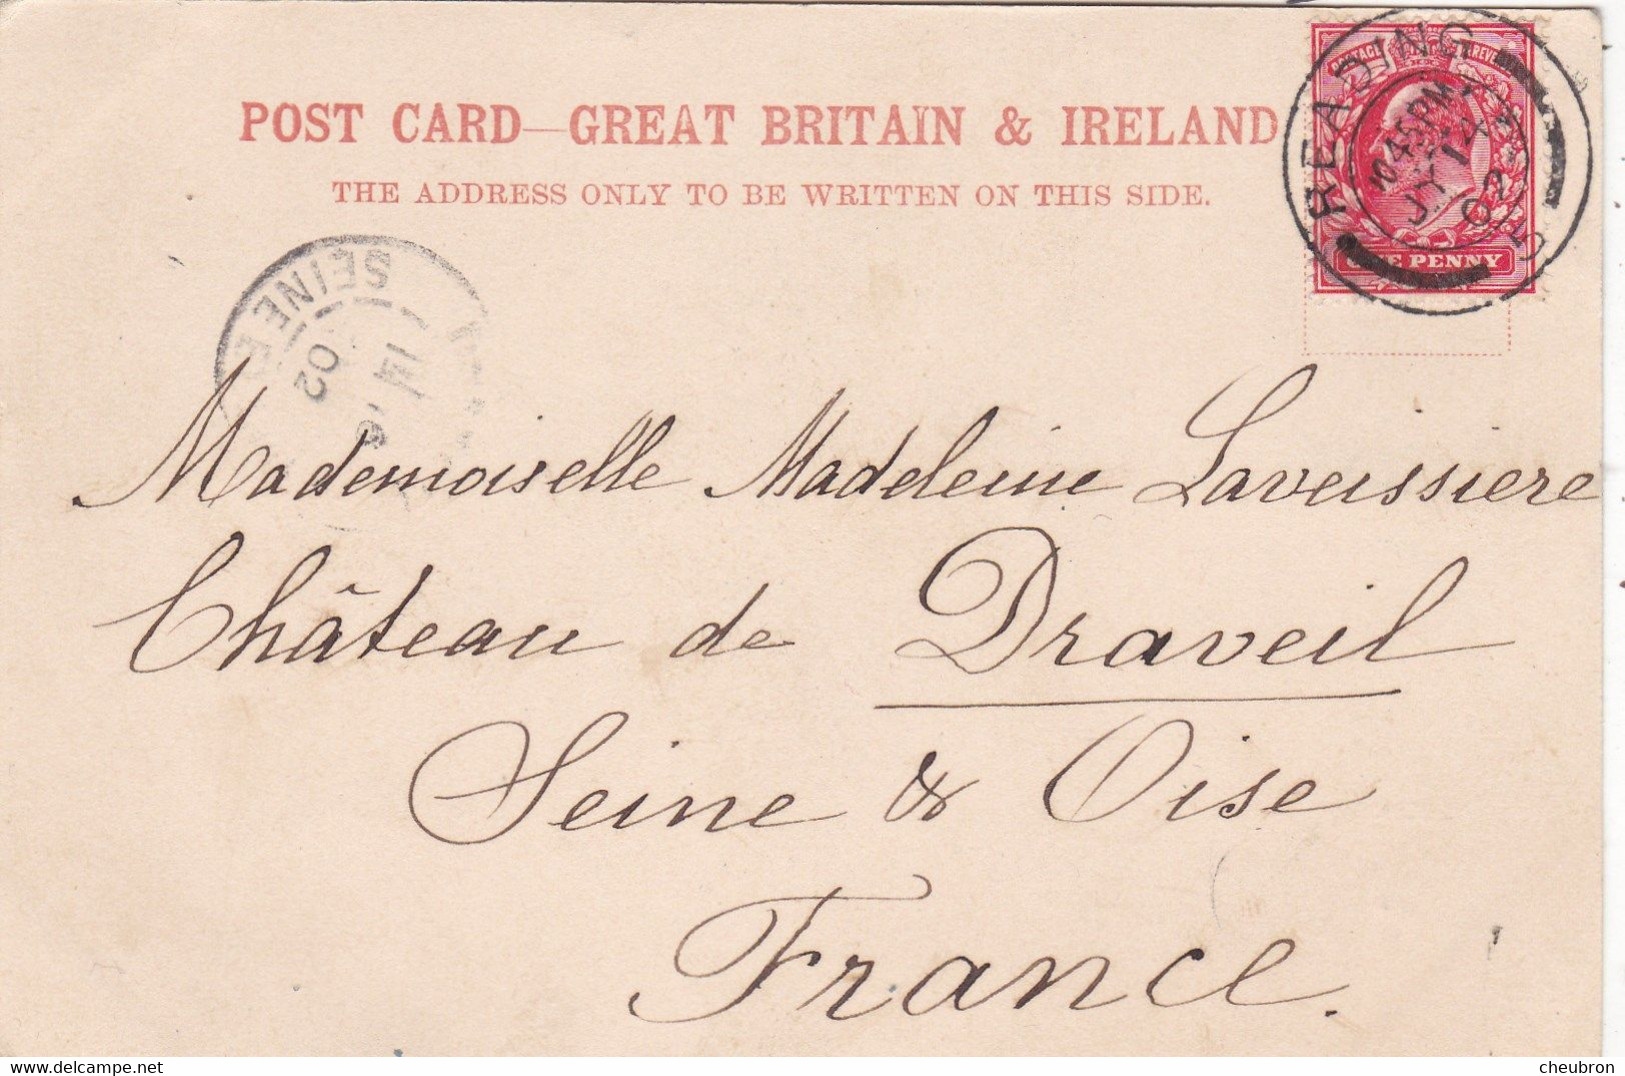 POST CARD—GREAT BRITAIN & IRELAND
THE ADDRESS ONLY TO BE WRITTEN ON THIS SIDE.
POSTAGE REVENUE
ONE PENNY
READING
10 45 PM
JY 14
02
SEINE
02
Mademoiselle Madeleine Laveissiere
Château de Draveil
Seine & Oise
France.
delcampe.net
cheubron